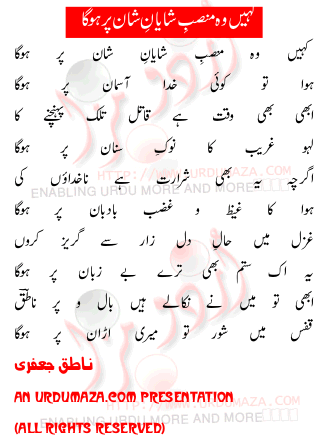 کہیں وہ منصبِ شایانِ شان پر ہوگا
کہیں وہ منصبِ شایانِ شان پر ہوگا
ہوا تو کوئی خدا آسمان پر ہوگا
ابھی بھی وقت ہے قاتل تلک پہنچنے کا
لہو غریب کا نوکِ سنان پر ہوگا
HTTP://WWW.URDUMAZA.COM
اگرچہ یہ بھی شرارت ہے ناخداؤں کی
ENABLING URDU MORE AND MORE
ہوا کا غیظ و غضب بادبان پر ہوگا
غزل میں حالِ دل زار سے گریز کروں
یہ اک ستم بھی ترے بے زبان پر ہوگا
ابھی تو میں نے نکالے ہیں بال و پر ناطقؔ
قفس میں شور تو میری اڑان پر ہوگا
ناطق جعفری
AN URDUMAZA.COM PRESENTATION
ENABLING URDU MORE AND MORE
(ALL RIGHTS RESERVED)